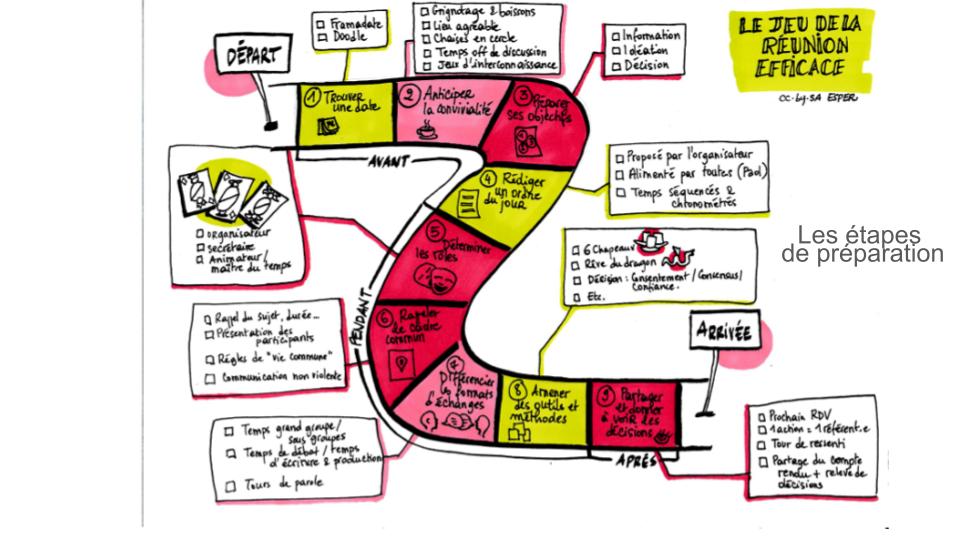 LE JEU DE LA
RÉUNION
EFFICACE
CC-by-SA ESPER
Les étapes
de préparation
DÉPART
① TROUVER
une date
□ Framadate
□ Doodle
② Anticiper
la convivialité
□ Grignotage & boissons
□ Lieu agréable
□ Chaises en cercle
□ Temps off de discussion
□ Jeux d'interconnaissance
③ Préparer
ses objectifs
□ Information
□ Idéation
□ Décision
AVANT
④ Rédiger
un ordre
du jour
□ Proposé par l'organisateur
□ Alimenté par toutes (Pad)
□ Temps séquencés &
chronométrés
PENDANT
⑤ Déterminer
les rôles
□ organisateur
□ secrétaire
□ Animateur/
maître du temps
⑥ Rappeler
le cadre
commun
□ Rappel du sujet, durée...
□ Présentation des
participants
□ Règles de "vie commune"
□ Communication non violente
⑦
Différencier
les formats
d'échanges
□ Temps grand groupe/
sous groupes
□ Temps de débat / temps
d'écriture & production
□ Tours de parole
⑧ Amener
des outils et
méthodes
□ 6 Chapeaux
□ Rêve du dragon
□ Décision : Consentement / Consensus /
Confiance.
□ Etc.
⑨ Partager
et donner
à voir les
décisions
APRÈS
□ Prochain RDV
□ 1 action = 1 référent.e
□ Tour de ressenti
□ Partage du compte
rendu + relevé de
décisions
ARRIVÉE